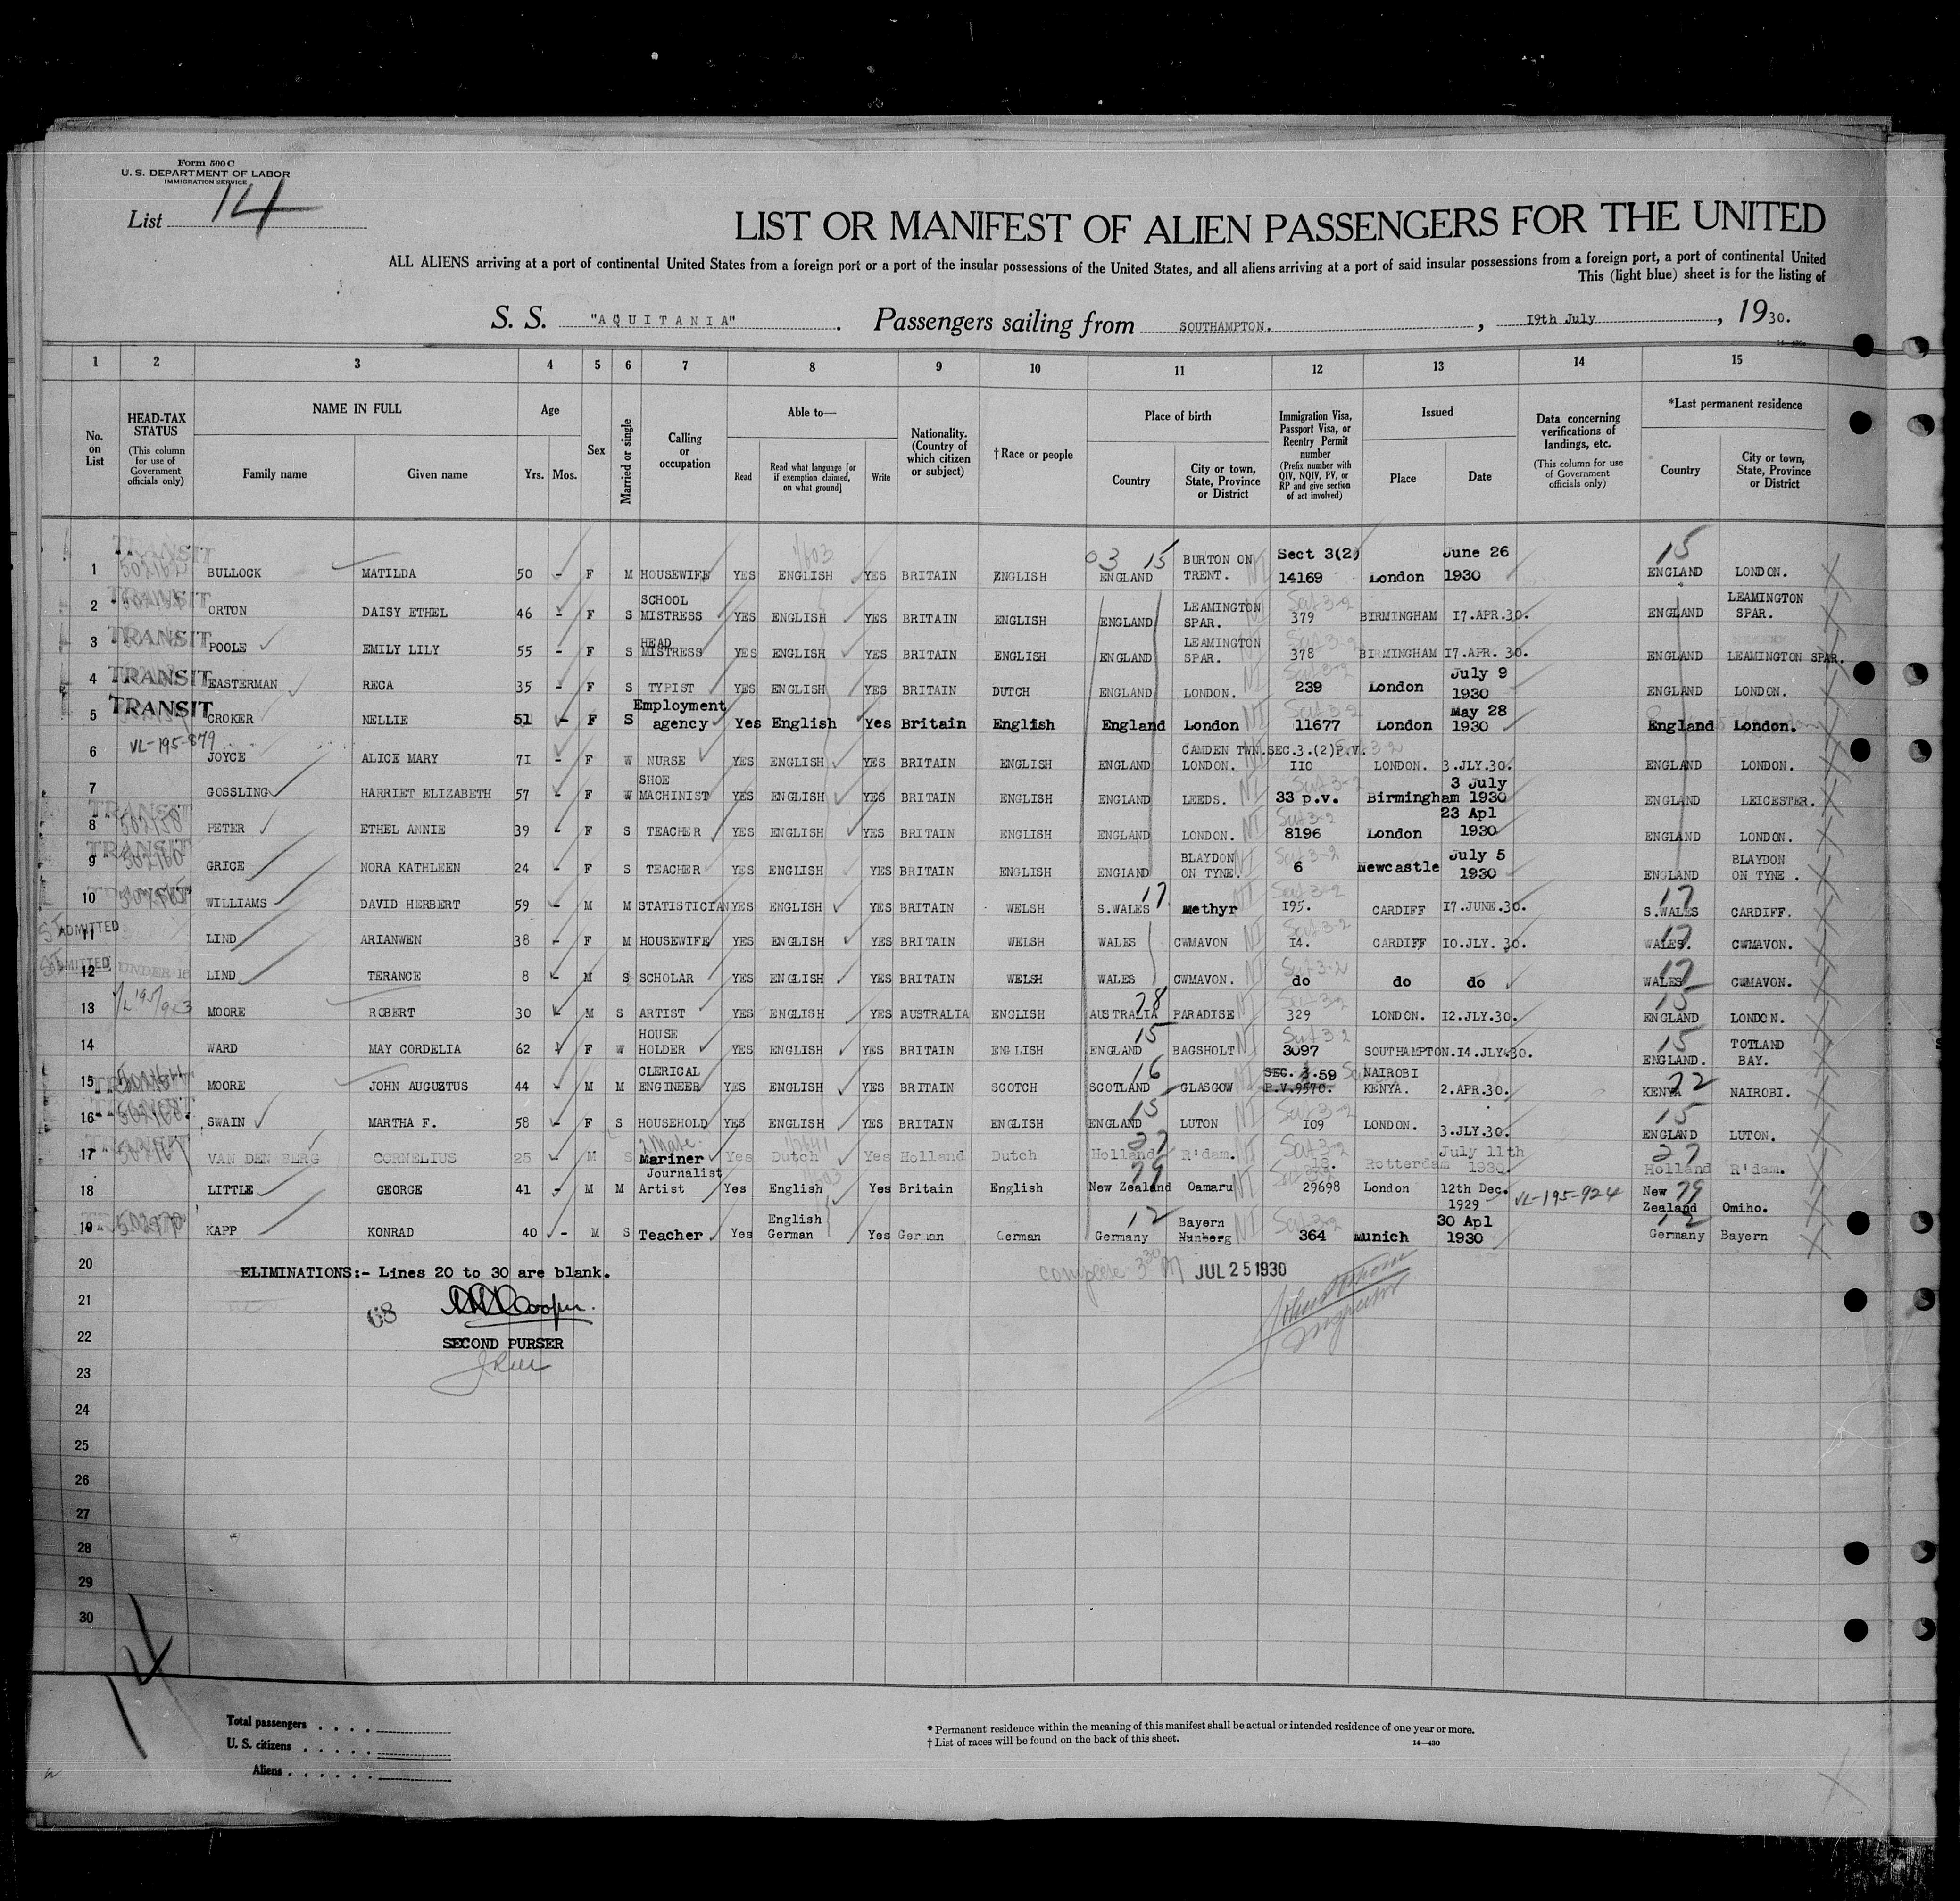 Form 500 C
U. S. DEPARTMENT OF LABOR
IMMIGRATION SERVICE
List 14
LIST OR MANIFEST OF ALIEN PASSENGERS FOR THE UNITED
ALL ALIENS arriving at a port of continental United States from a foreign port or a port of the insular possessions of the United States, and all aliens arriving at a port of said insular possessions from a foreign port, a port of continental United
This (light blue) sheet is for the listing of
S. S. "AQUITANIA" . Passengers sailing from SOUTHAMPTON. , 19th July , 1930.
1 2 3 4 5 6 7 8 9 10 11 12 13 14 15
No. on List
HEAD-TAX STATUS (This column for use of Government officials only)
NAME IN FULL
Family name Given name
Age
Yrs. Mos.
Sex
Married or single
Calling or occupation
Able to—
Read Read what language [or if exemption claimed, on what ground] Write
Nationality. (Country of which citizen or subject)
†Race or people
Place of birth
Country City or town, State, Province or District
Immigration Visa, Passport Visa, or Reentry Permit number (Prefix number with QIV, NQIV, PV, or RP and give section of act involved)
Issued
Place Date
Data concerning verifications of landings, etc. (This column for use of Government officials only)
*Last permanent residence
Country City or town, State, Province or District
1 TRANSIT BULLOCK MATILDA 50 - F M HOUSEWIFE YES ENGLISH YES BRITAIN ENGLISH 03 15 ENGLAND BURTON ON TRENT. Sect 3(2) 14169 London June 26 1930 15 ENGLAND LONDON.
2 TRANSIT ORTON DAISY ETHEL 46 - F S SCHOOL MISTRESS YES ENGLISH YES BRITAIN ENGLISH ENGLAND LEAMINGTON SPAR. Sect 3-2 379 BIRMINGHAM 17.APR.30. ENGLAND LEAMINGTON SPAR.
3 TRANSIT POOLE EMILY LILY 55 - F S HEAD MISTRESS YES ENGLISH YES BRITAIN ENGLISH ENGLAND LEAMINGTON SPAR. Sect 3-2 378 BIRMINGHAM 17.APR. 30. ENGLAND LEAMINGTON SPAR.
4 TRANSIT EASTERMAN RECA 35 - F S TYPIST YES ENGLISH YES BRITAIN DUTCH ENGLAND LONDON. Sect 3-2 239 London July 9 1930 ENGLAND LONDON.
5 TRANSIT CROKER NELLIE 51 - F S Employment agency Yes English Yes Britain English England London Sect 3-2 11677 London May 28 1930 England London.
6 VL-195-879 JOYCE ALICE MARY 71 - F W NURSE YES ENGLISH YES BRITAIN ENGLISH ENGLAND CAMDEN TWN. LONDON. SEC.3.(2)P.V. 110 LONDON. 3.JLY.30. ENGLAND LONDON.
7 GOSSLING HARRIET ELIZABETH 57 - F W SHOE MACHINIST YES ENGLISH YES BRITAIN ENGLISH ENGLAND LEEDS. Sect 3-2 33 p.v. Birmingham 3 July 1930 ENGLAND LEICESTER.
8 TRANSIT PETER ETHEL ANNIE 39 - F S TEACHER YES ENGLISH YES BRITAIN ENGLISH ENGLAND LONDON. Sect 3-2 8196 London 23 Apl 1930 ENGLAND LONDON.
9 TRANSIT GRICE NORA KATHLEEN 24 - F S TEACHER YES ENGLISH YES BRITAIN ENGLISH ENGLAND BLAYDON ON TYNE. Sect 3-2 6 Newcastle July 5 1930 ENGLAND BLAYDON ON TYNE .
10 TRANSIT WILLIAMS DAVID HERBERT 59 - M M STATISTICIAN YES ENGLISH YES BRITAIN WELSH 17 S.WALES Methyr Sect 3-2 195. CARDIFF 17.JUNE.30. 17 S.WALES CARDIFF.
11 ADMITTED LIND ARIANWEN 38 - F M HOUSEWIFE YES ENGLISH YES BRITAIN WELSH WALES CWMAVON Sect 3-2 14. CARDIFF 10.JLY. 30. 17 WALES. CWMAVON.
12 ADMITTED UNDER 16 LIND TERANCE 8 - M S SCHOLAR YES ENGLISH YES BRITAIN WELSH WALES CWMAVON. Sect 3-2 do do do 17 WALES CWMAVON.
13 MOORE ROBERT 30 M S ARTIST YES ENGLISH YES AUSTRALIA ENGLISH 28 AUSTRALIA PARADISE Sect 3-2 329 LONDON. 12.JLY.30. 15 ENGLAND LONDON.
14 WARD MAY CORDELIA 62 F W HOUSE HOLDER YES ENGLISH YES BRITAIN ENGLISH 15 ENGLAND BAGSHOLT Sect 3-2 3097 SOUTHAMPTON.14.JLY.30. 15 ENGLAND. TOTLAND BAY.
15 TRANSIT MOORE JOHN AUGUSTUS 44 - M M CLERICAL ENGINEER YES ENGLISH YES BRITAIN SCOTCH 16 SCOTLAND GLASGOW SEC. 3.59 P.V.957C. NAIROBI KENYA. 2.APR.30. 22 KENYA NAIROBI.
16 TRANSIT SWAIN MARTHA F. 58 - F S HOUSEHOLD YES ENGLISH YES BRITAIN ENGLISH 15 ENGLAND LUTON Sect 3-2 109 LONDON. 3.JLY.30. 15 ENGLAND LUTON.
17 TRANSIT VAN DEN BERG CORNELIUS 25 - M S 2 Mate. Mariner Yes Dutch Yes Holland Dutch 27 Holland R'dam. Sect 3-2 13. Rotterdam July 11th 1930. 27 Holland R'dam.
18 LITTLE GEORGE 41 - M M Journalist Artist Yes English Yes Britain English 29 New Zealand Oamaru 29698 London 12th Dec. 1929 VL-195-924 29 New Zealand Omiho.
19 KAPP KONRAD 40 - M S Teacher Yes English German Yes German German 12 Germany Bayern Nunberg Sect 3-2 364 Munich 30 Apl 1930 12 Germany Bayern
20 ELIMINATIONS:- Lines 20 to 30 are blank. JUL 25 1930
21 68 Cooper.
22 SECOND PURSER Inspector
23
24
25
26
27
28
29
30
14
Total passengers . . . .
U. S. citizens . . . . .
Aliens . . . . . .
* Permanent residence within the meaning of this manifest shall be actual or intended residence of one year or more.
† List of races will be found on the back of this sheet.
14—430